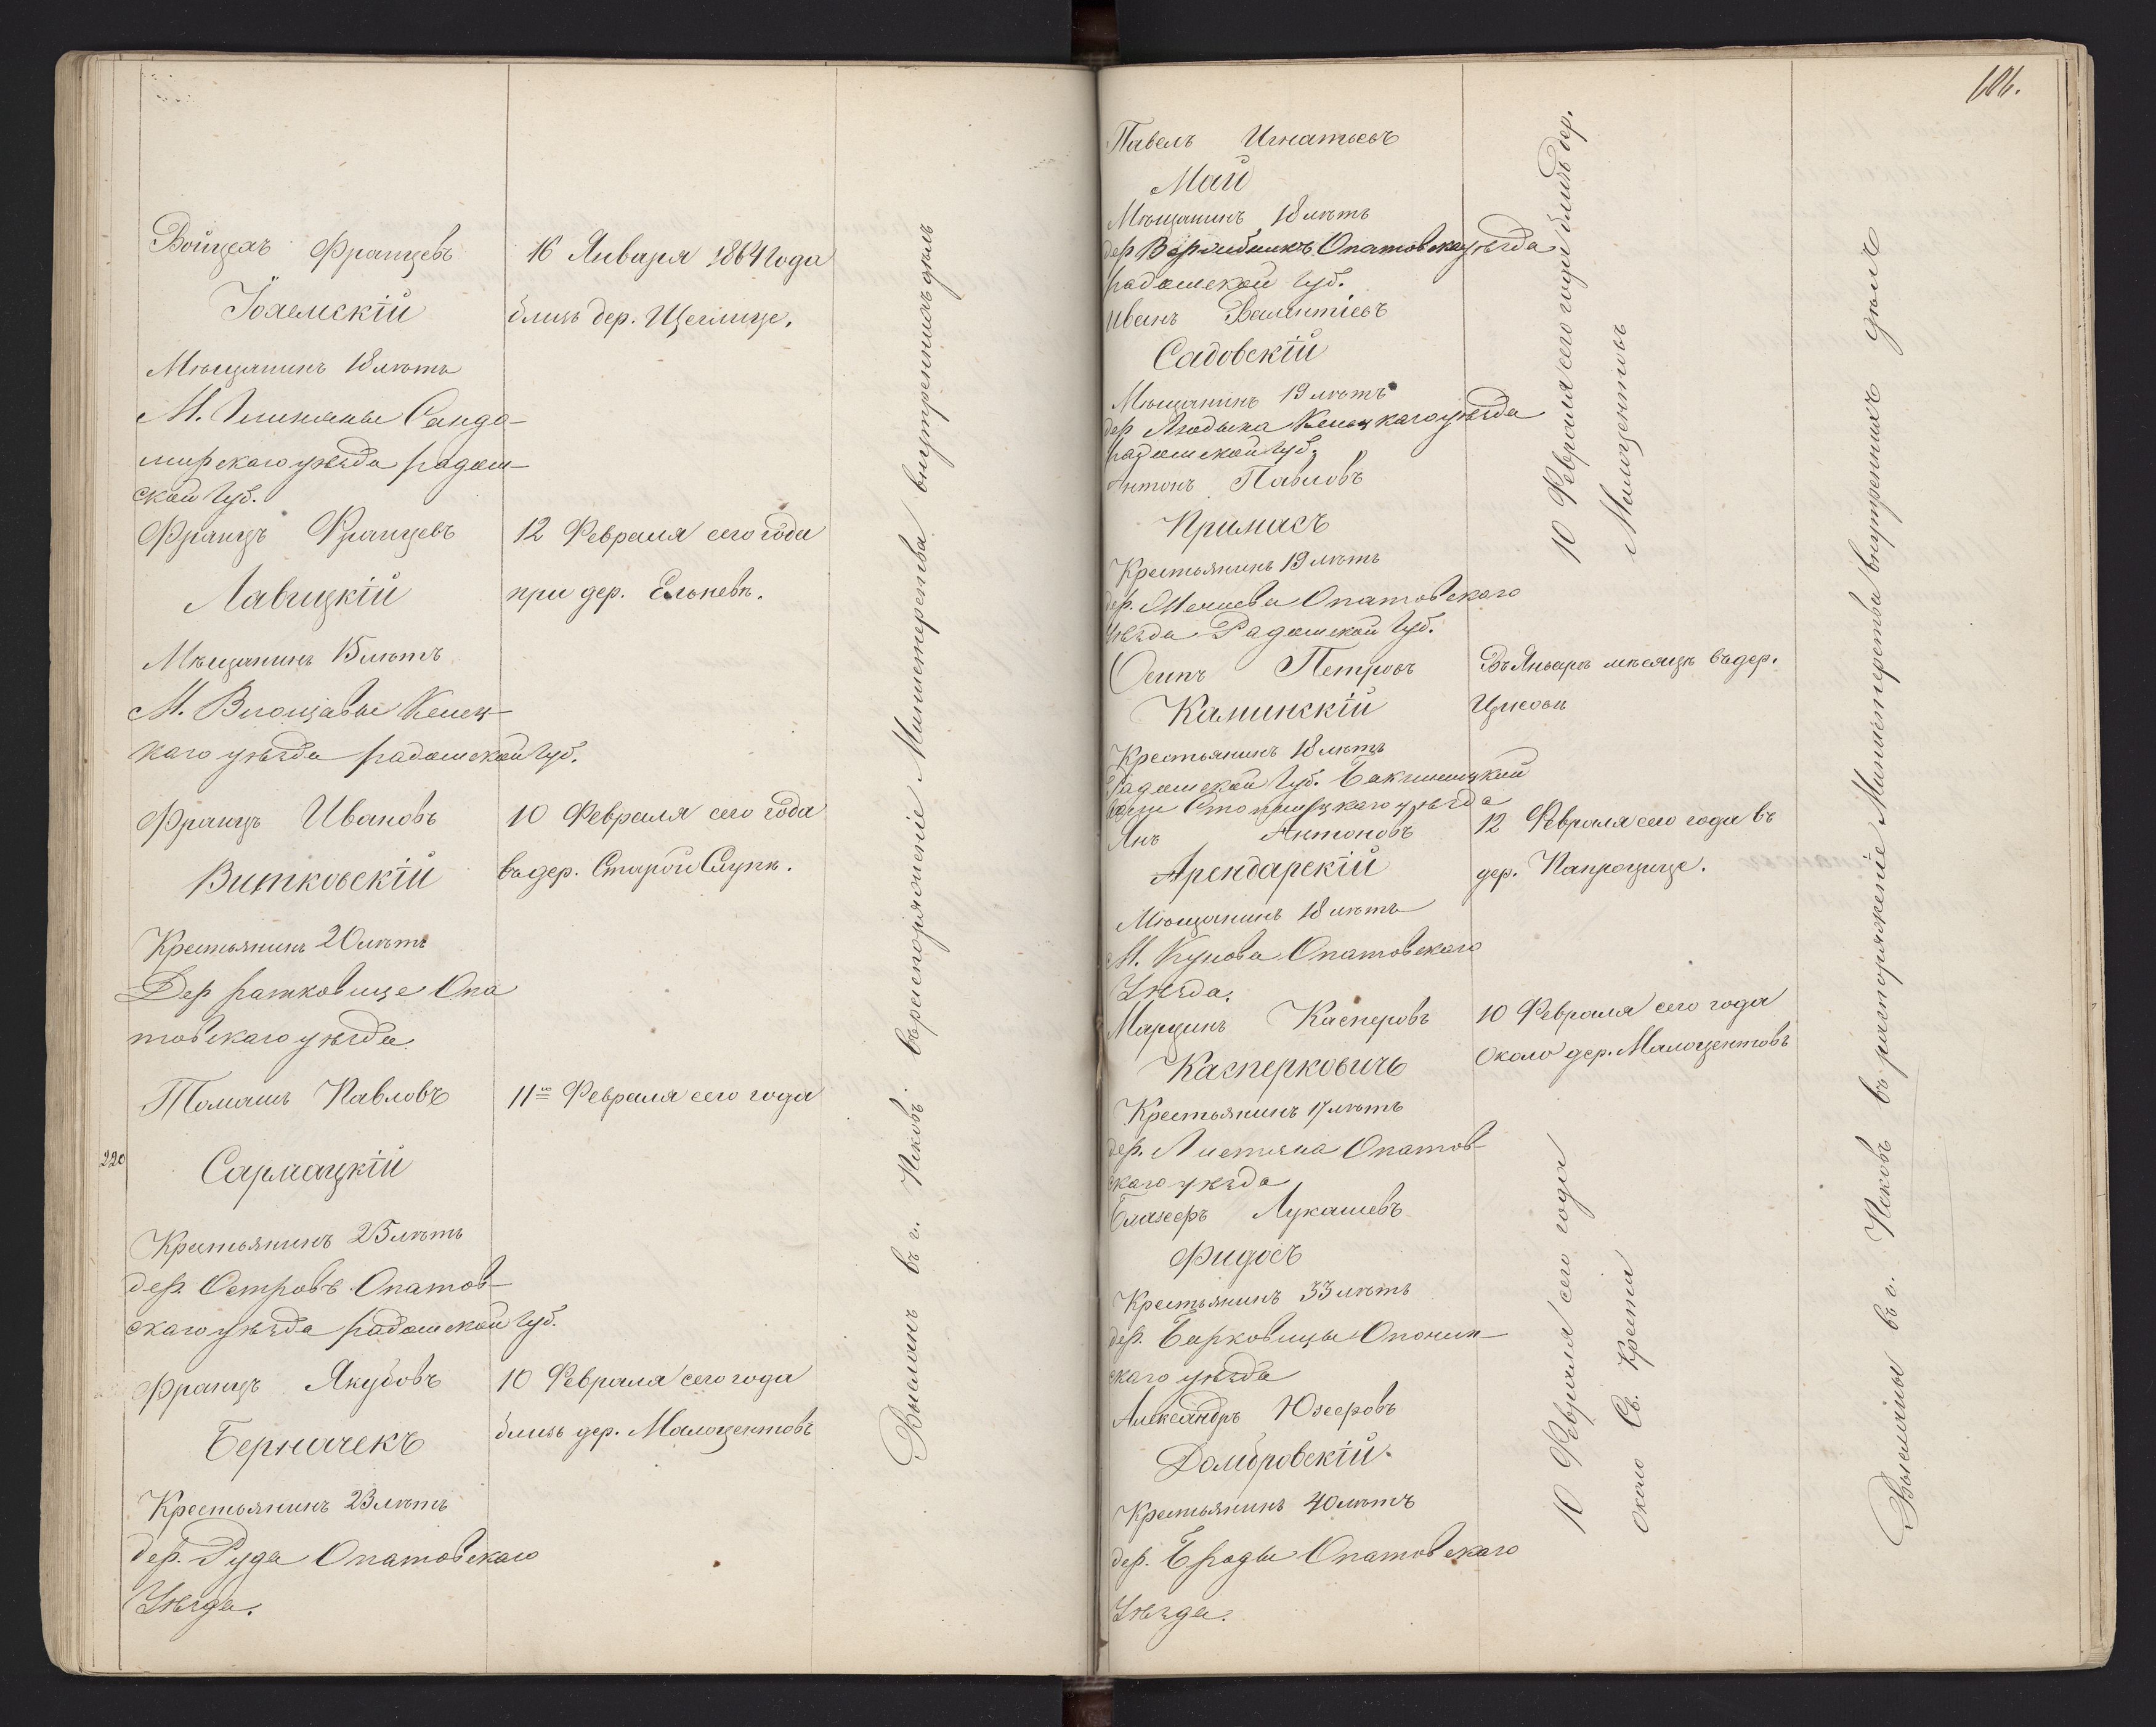 Войцехъ Францевъ
мскій
Мѣщанинъ 18 лѣтъ
М. Сандо-
мирскаго уѣзда радом-
ской губ.
16 Января 1864 года
близь дер. Щеглице.
Францъ Францевъ
Лавицкій
Мѣщанинъ 15 лѣтъ
М. Влощавы Келец-
каго уѣзда радомской губ.
12 Февраля сего года
при дер. Ельневѣ.
Францъ Ивановъ
Витковскій
Крестьянинъ 20 лѣтъ
Дер ратковице Опа
товскаго уѣзда
10 Февраля сего года
въ дер. Старой Слупи.
Томашъ Павловъ
220
Сармацкій
Крестьянинъ 25 лѣтъ
дер. Островъ Опатов-
скаго уѣзда радомской губ.
11го Февраля сего года
Францъ Якубовъ
Берначекъ
Крестьянинъ 23 лѣтъ
дер. Руда Опатовскаго
Уѣзда.
10 Февраля сего года
близь дер. Малоцентовъ
Высланъ въ г. Псковъ въ распоряженіе Министерства внутреннихъ дѣлъ
106.
Павелъ Игнатьевъ
Май
Мѣщанинъ 18 лѣтъ
дер Опатовска уѣзда
радомской губ.
Иванъ Валентіевъ
Садовскій
Мѣщанинъ 19 лѣтъ
дер Келецкаго уѣзда
радомской губ.
Антонъ Павловъ
Примасъ
Крестьянинъ 19 лѣтъ
дер. Опатовскаго
Уѣзда Радомской губ.
10 Февраля сего года близь дер.
Малоцентовъ
Осипъ Петровъ
Калинскій
Крестьянинъ 18 лѣтъ
Радомской губ.
уѣзда
Въ Январѣ мѣсяцѣ въ дер.
Цисовѣ
Янъ Антоновъ
Арендарскій
Мѣщанинъ 18 лѣтъ
М. Кунова Опатовскаго
Уѣзда.
12 Февраля сего года въ
дер. Папроцице.
Марцинъ Касперовъ
Касперковичъ
Крестьянинъ 17 лѣтъ
дер. Опатов-
скаго уѣзда
10 Февраля сего года
около дер. Малоцентовъ
Блажеръ Лукашевъ
Фидосъ
Крестьянинъ 33 лѣтъ
дер. Барковицы Опочин-
скаго уѣзда
Александръ Юзееровъ
Домбровскій.
Крестьянинъ 40 лѣтъ
дер. Броды Опатовскаго
Уѣзда.
10 Февраля сего года
около Св. Креста
Высланы въ г. Псковъ въ распоряженіе Министерства внутреннихъ дѣлъ